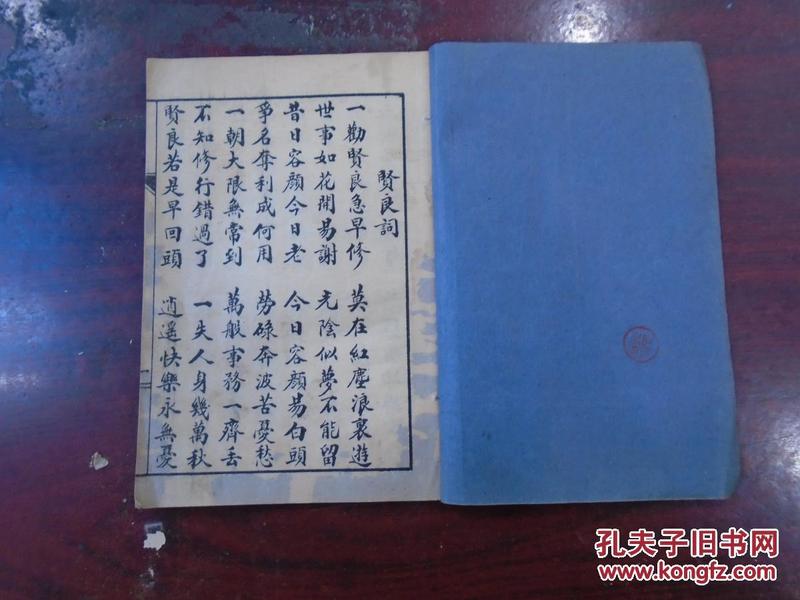 賢良詞
一勸賢良急早修　莫在紅塵浪裏遊
世事如花開易謝　光陰似夢不能留
昔日容顏今日老　今日容顏易白頭
爭名奪利成何用　勞碌奔波苦憂愁
一朝大限無常到　萬般事務一齊丟
不知修行錯過了　一失人身幾萬秋
賢良若是早回頭　逍遥快樂永無憂
孔夫子旧书网
www.kongfz.com